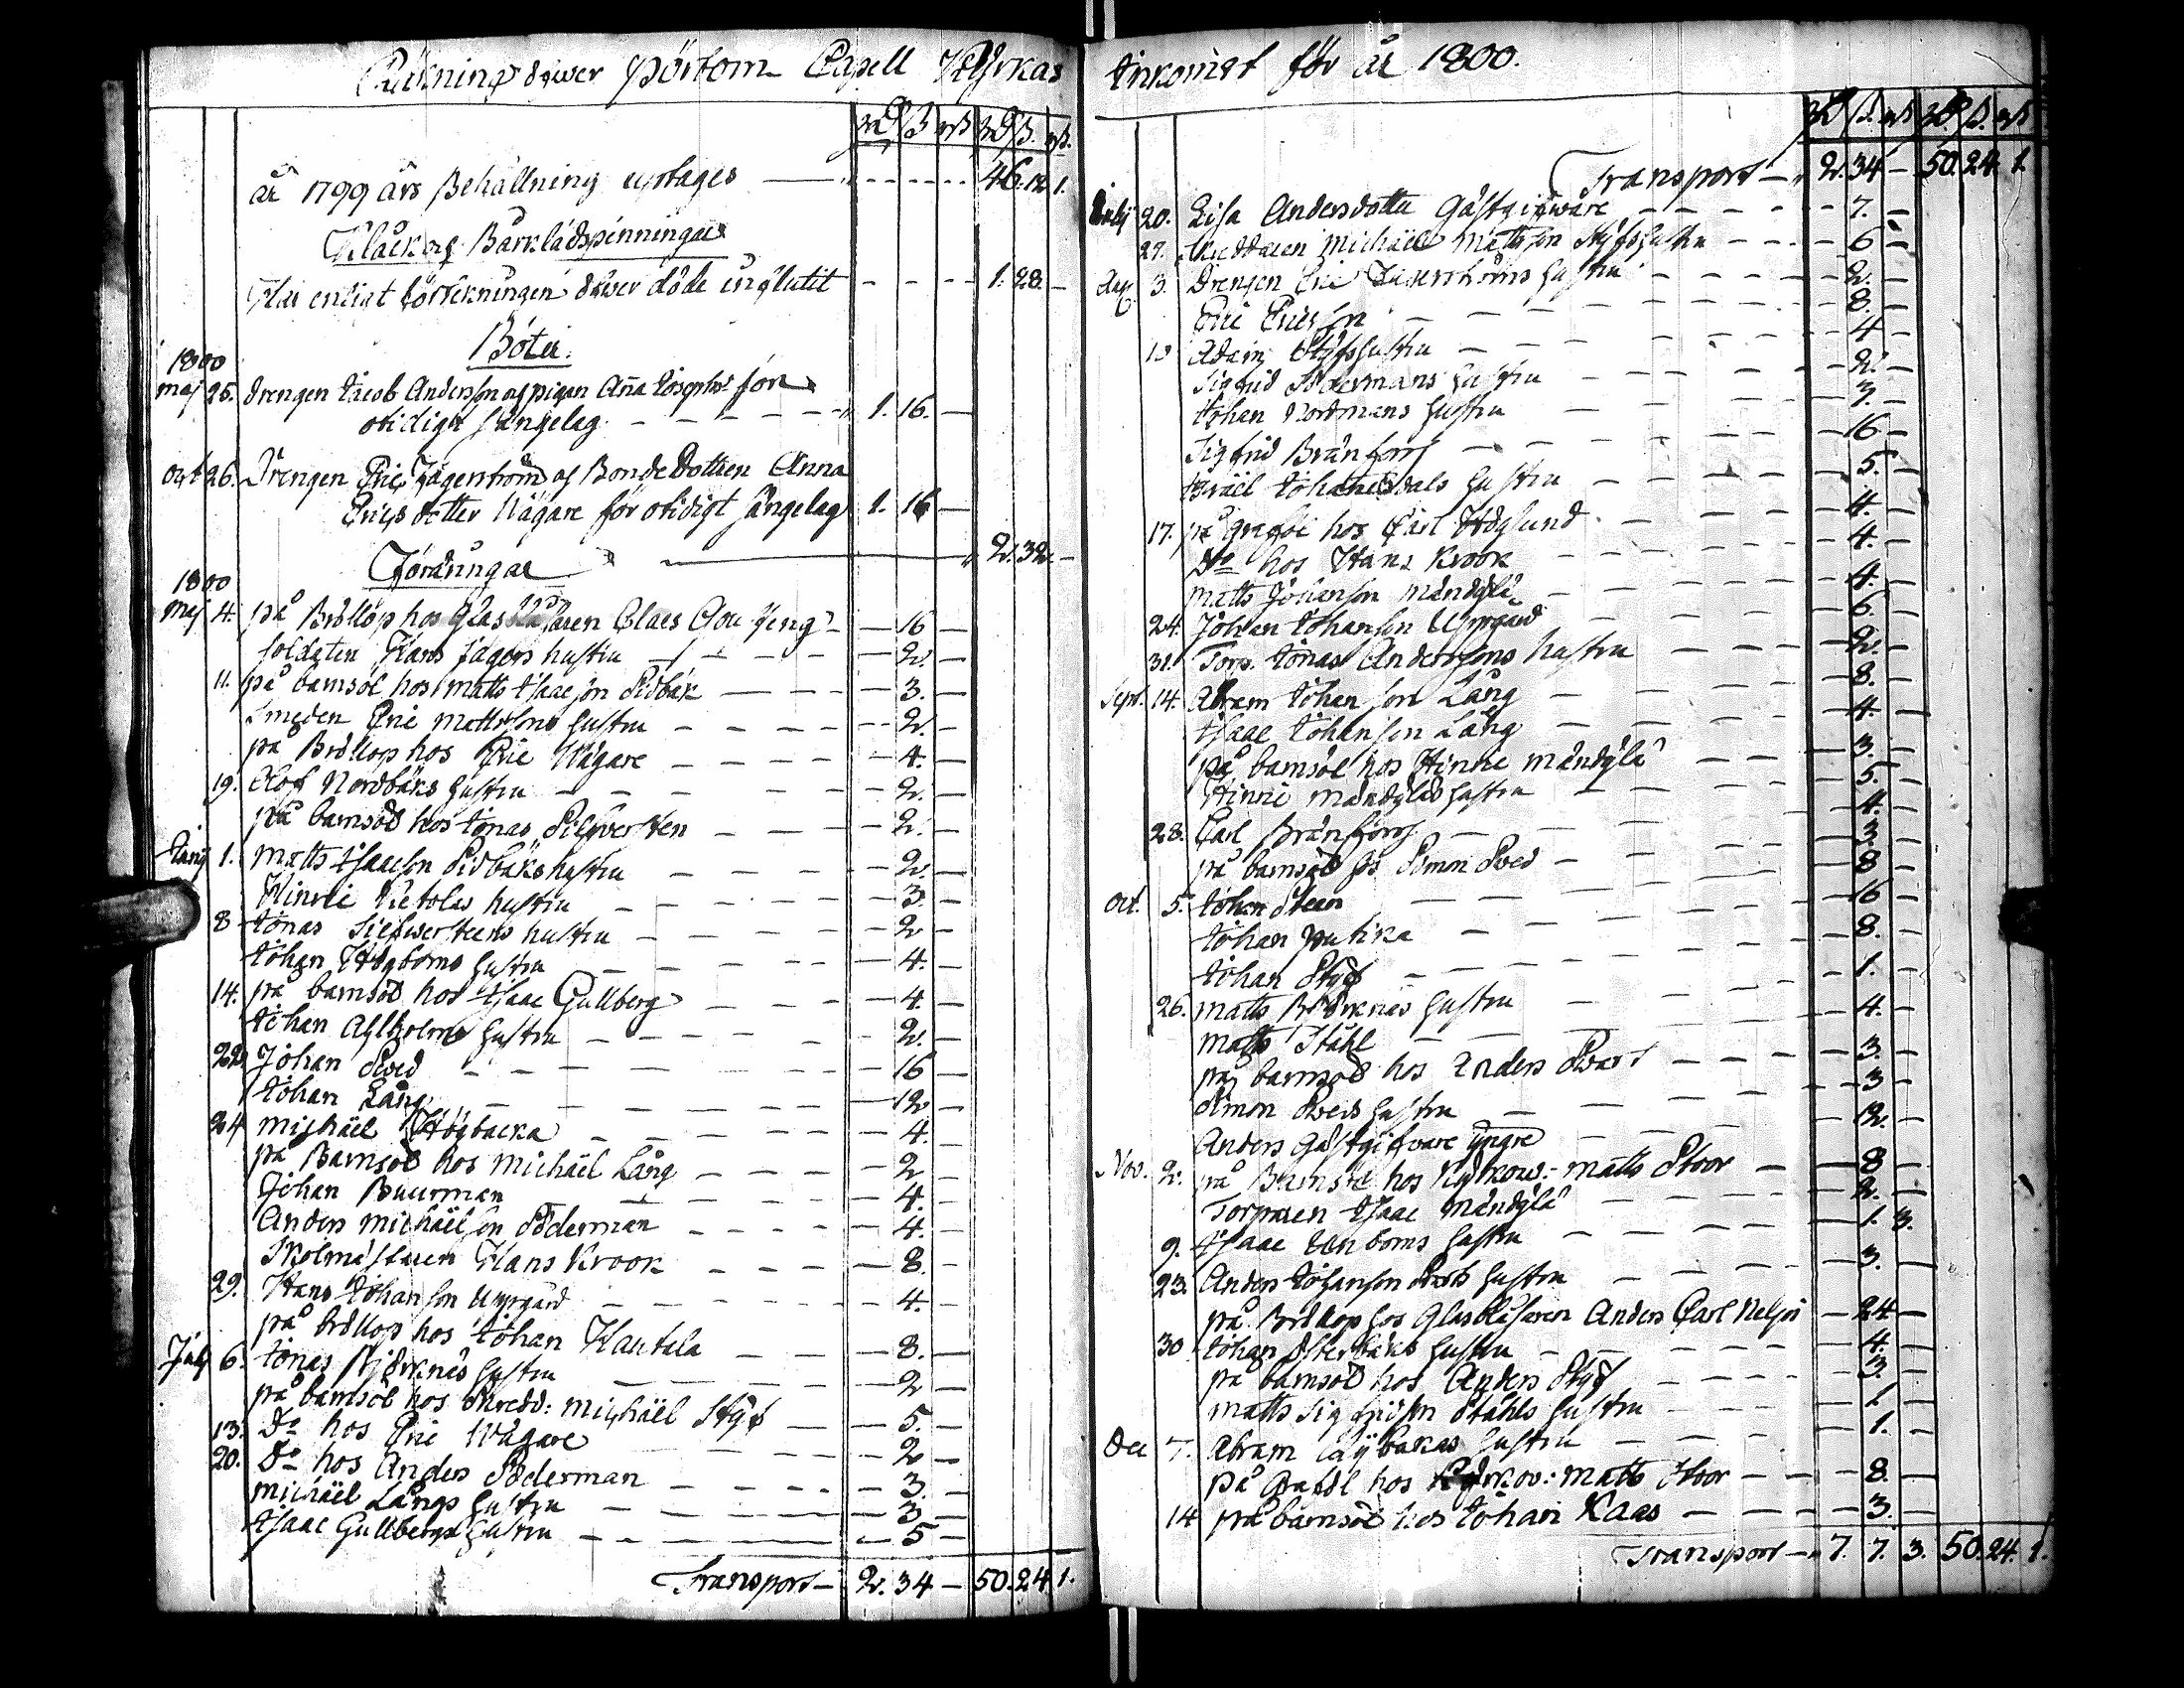 Räkning öfwer Pörtom Capell Kyrkas
Rd ß rs Rd ß. rs.
år 1799 års Behållning uptages — 46. 12. 1.
Klåck och Bårklädspenningar
Har enligt förtekningen öfwer döde influtit - - - 1. 28. —
Böter.
1800
maj 25. Drengen Jacob Andersson och pigan Anna Josephsd:r för
otidigt sängelag - - - - 1. 16. —
Oct 26. Drengen Eric Jägerström och BondeDottren Anna
Ericsdotter Wägare för otidigt sängelag 1. 16 —
2. 32. —
Föräringar
1800
Maj 4. på Bröllop hos Glasblåsaren Claes — 16 —
Soldaten Hans Jägers hustru — 2. —
11. på barnsöl hos Matts Isaacson Sidbäck — 3. —
Smeden Eric Mattssons hustru — 2. —
på Bröllop hos Eric Wägare — 4. —
19. Olof Nordbäcks hustru — 2. —
på barnsöl hos Jonas Silfwersten — 2. —
Junij 1. Matts Isaacson Sidbäcks hustru — 2. —
Hinric Kietolas hustru — 3. —
8 Jonas Silfwersteens hustru — 2 —
Johan Högboms hustru — 4. —
14. på barnsöl hos Isaac Gullberg — 4. —
Johan Ahlholms hustru — 2. —
22. Johan Sved — 16 —
Johan Lång — 12 —
24 Michäel Högbacka — 4. —
på Barnsöl hos Michäel Lång — 2 —
Johan Buurman — 4. —
Anders Michäelson Söderman — 4. —
Skolmästaren Hans Krook — 8. —
29. Hans Johanson Uppgård — 4. —
på bröllop hos Johan Hautala — 8. —
July 6. Jonas Björknäs hustru — 2 —
på barnsöl hos Skredd: Michäel Styf — 5. —
13. D:o hos Eric Wägare — 2 —
20. D:o hos Anders Söderman — 3. —
Michäel Långs hustru — 3 —
Isaac Gullbergs hustru — 5 —
Transport — 2. 34 — 50. 24 1.
Inkomst för år 1800.
Rd ß. rs Rd ß. rs
Transport — 2. 34 — 50. 24. 1.
Julij 20. Lisa Andersdotter Gästgifware — 7. —
27. Skreddaren Michäel Mattsson Styfs hustru — 6 —
Aug. 3. Drengen Eric Jägerströms hustru — 2. —
Eric Ericsson — 8. —
10 Adam Styfs hustru — 4 —
Sigfrid Södermans hustru — 2. —
Johan Nordmans hustru — 3. —
Sigfrid Brännfors — 16 —
Israel Johannisdals hustru — 5. —
17. på graföl hos Carl Höglund — 4. —
D:o hos Hans Krook — 4. —
Matts Johanson Mändylä — 4. —
24. Johan Johanson Uppgård — 6. —
31. Torp. Jonas Anderssons hustru — 2. —
Sept. 14. Abram Johanson Lång — 8. —
Isaac Johanson Lång — 4. —
på barnsöl hos Hinric Mändylä — 3. —
Hinric Mändyläs hustru — 5. —
28. Carl Brännfors — 4. —
på barnsöl hos Simon Sved — 3. —
Oct. 5. Johan Steen — 8 —
Johan Putika — 16 —
Johan Styf — 8. —
26. Matts Björknäs hustru — 1. —
Matts Ståhl — 4. —
på barnsöl hos Anders Svart — 3. —
Simon Sveds hustru — 3 —
Anders Gästgifware yngre — 12. —
Nov. 2. på Barnsöl hos Kyrkow: Matts Stoor — 8 —
Torparen Isaac Mändylä — 2. —
9. Isaac Enboms hustru — 1. 3.
23. Anders Johanson hustru — 3. —
på Bröllop hos Glasblåsaren Anders Carl Nelson — 24 —
30 Johan Österbäcks hustru — 4. —
på barnsöl hos Anders Styf — 3. —
Matts Sigfridson Ståhls hustru — 1 —
Dec 7. Abram Låybackas hustru — 1. —
på Graföl hos Kyrkov: Matts Stoor — 8. —
14 på barnsöl hos Johan Kaas — 3. —
Transport — 7. 7. 3. 50. 24. 1.